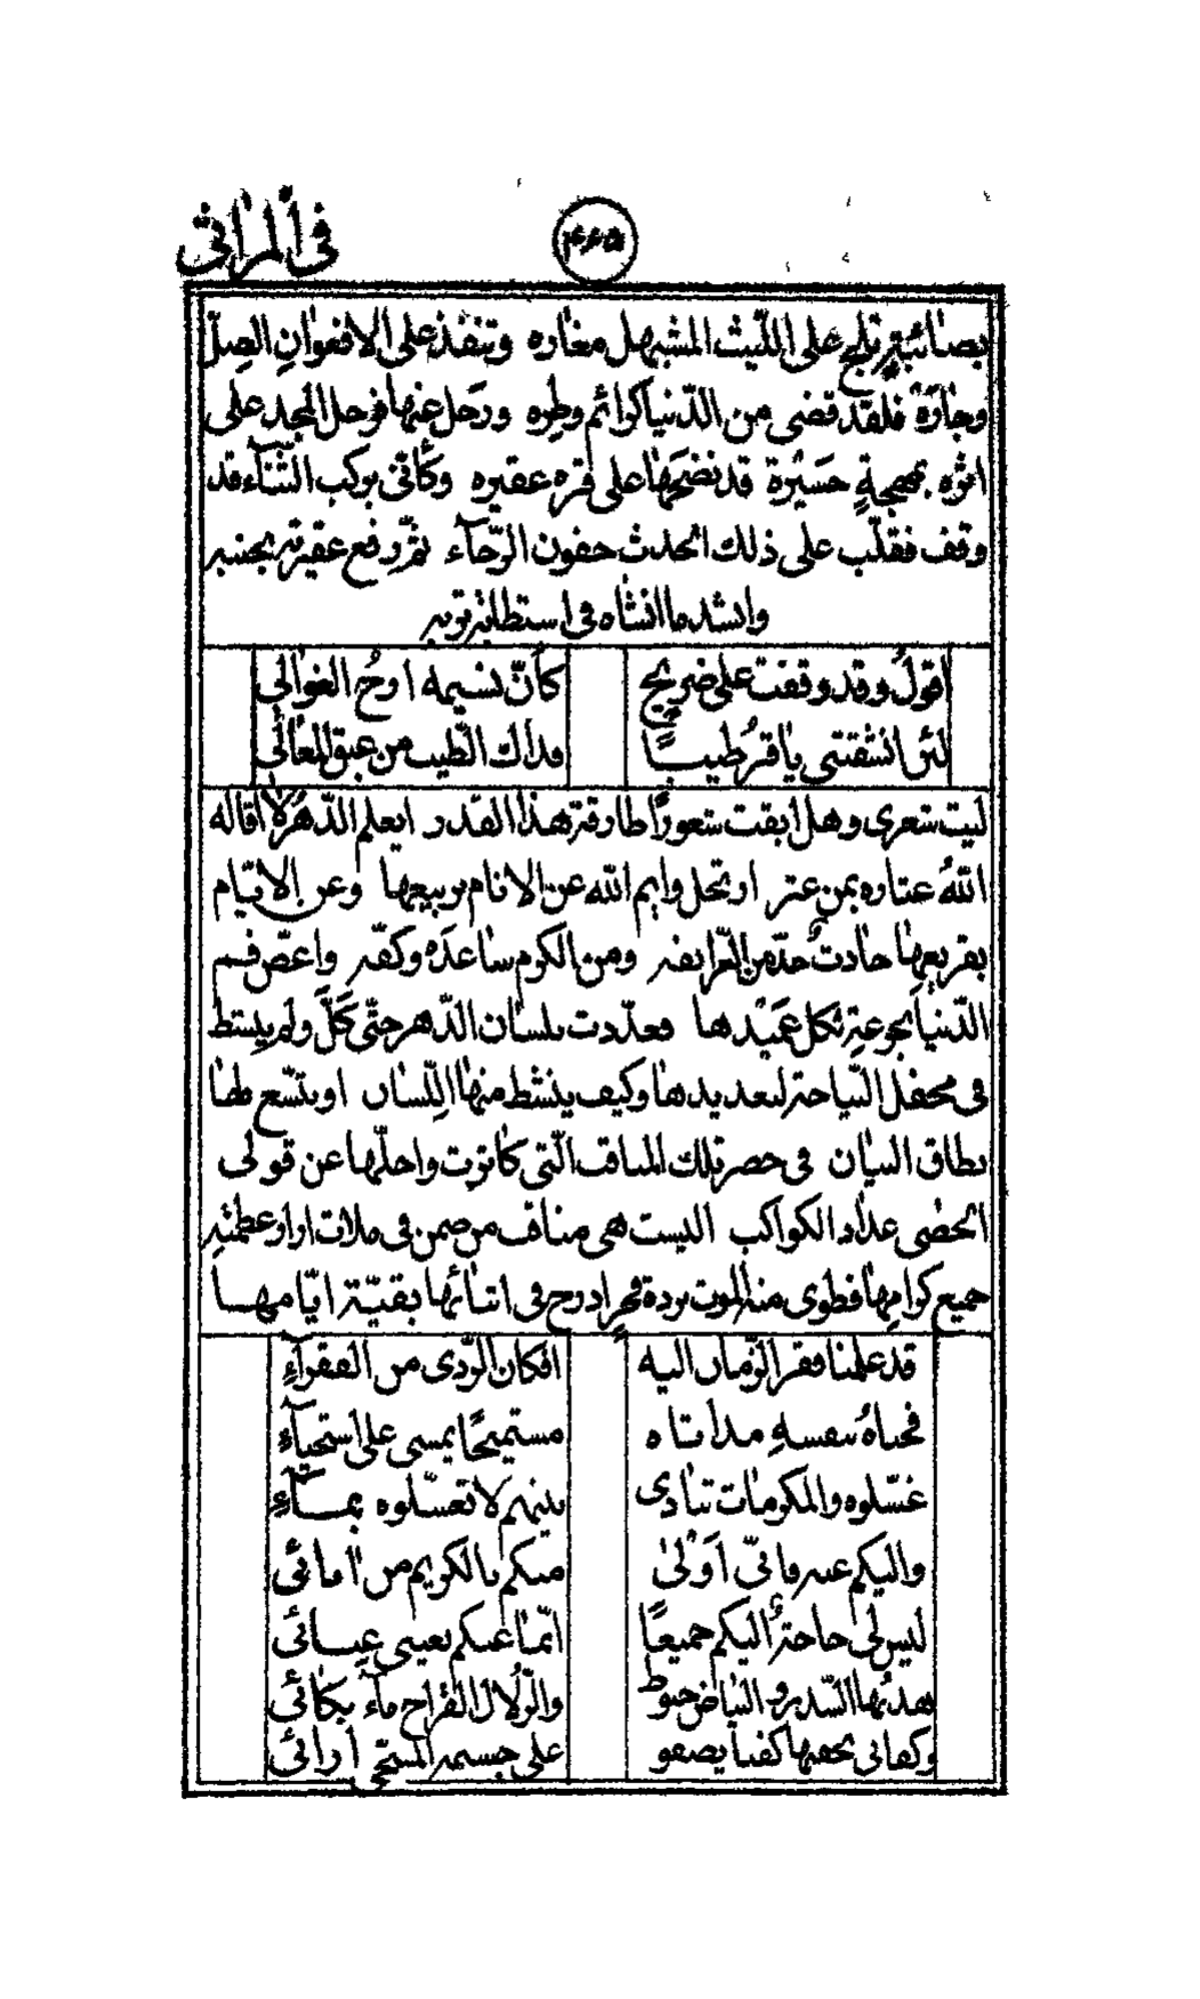 في المراثي
٤٤٥
بصائبة تلج على الليث المشبل مغاره وتنفذ على الافعوان الصلّ
وجاره فلقد قضى من الدّنيا كرائم وطره ورحل عنها فرحل المجد على
اثره بمهجةٍ حسيرة قد نضحها على قبره عقيره وكأنّي بركب الثناء قد
وقف فقلّب على ذلك الحدث جفون الرّجاء ثمّ رفع عقيرته بجنبه
وانشد ما انشاه في استطابة تربه
اقول وقد وقفت على ضريح
كأنّ نسيمه ارج الغوالي
لئن انشقتني يا قبر طيبًا
فذاك الطّيب من عبق المعالي
ليت شعري وهل ابقت شعورًا طارقة هذا القدر ايعلم الدّهر لا اقاله
الله عثاره بمن عثر او تحل وايم الله عن الانام ربيعها وعن الايّام
بقريعها حادث حدّ من العزّ انفه ومن الكرم ساعده وكفّه واغصّ فم
الدّنيا بجرعة ثكل عميدها فعدّدت بلسان الدّهر حتّى كلّ ولم يستط
في محفل النّياحة لتعديدها وكيف ينشط منها اللّسان او يتّسع لها
نطاق البيان في حصر تلك المناقب الّتي كاثرت واحلّها عن قولي
الحصى عداد الكواكب اليست هي مناقب من ضمن في
جميع كرامها فطوى منه الموت بردة فخر ادرج في اثنائها بقيّة ايّامها
قد علمنا فقر الزّمان اليه
افكان الرّدى من الفقراء
فحباه بنفسه مذ اتاه
مستميحًا يمسي على استحياء
غسّلوه والمكرمات تنادي
بينهم لا تغسّلوه بماء
واليكم عنه فانّي اولى
منكم بالكريم من امنائي
ليس لي حاجة اليكم جميعًا
انّما عنكم بعيني غنائي
هدبها السّدر والبياض حنوط
والزّلال القراح ماء بكائي
وكفاني بجفنها كفنا يضفو
على جسمه المسجّى ازائي